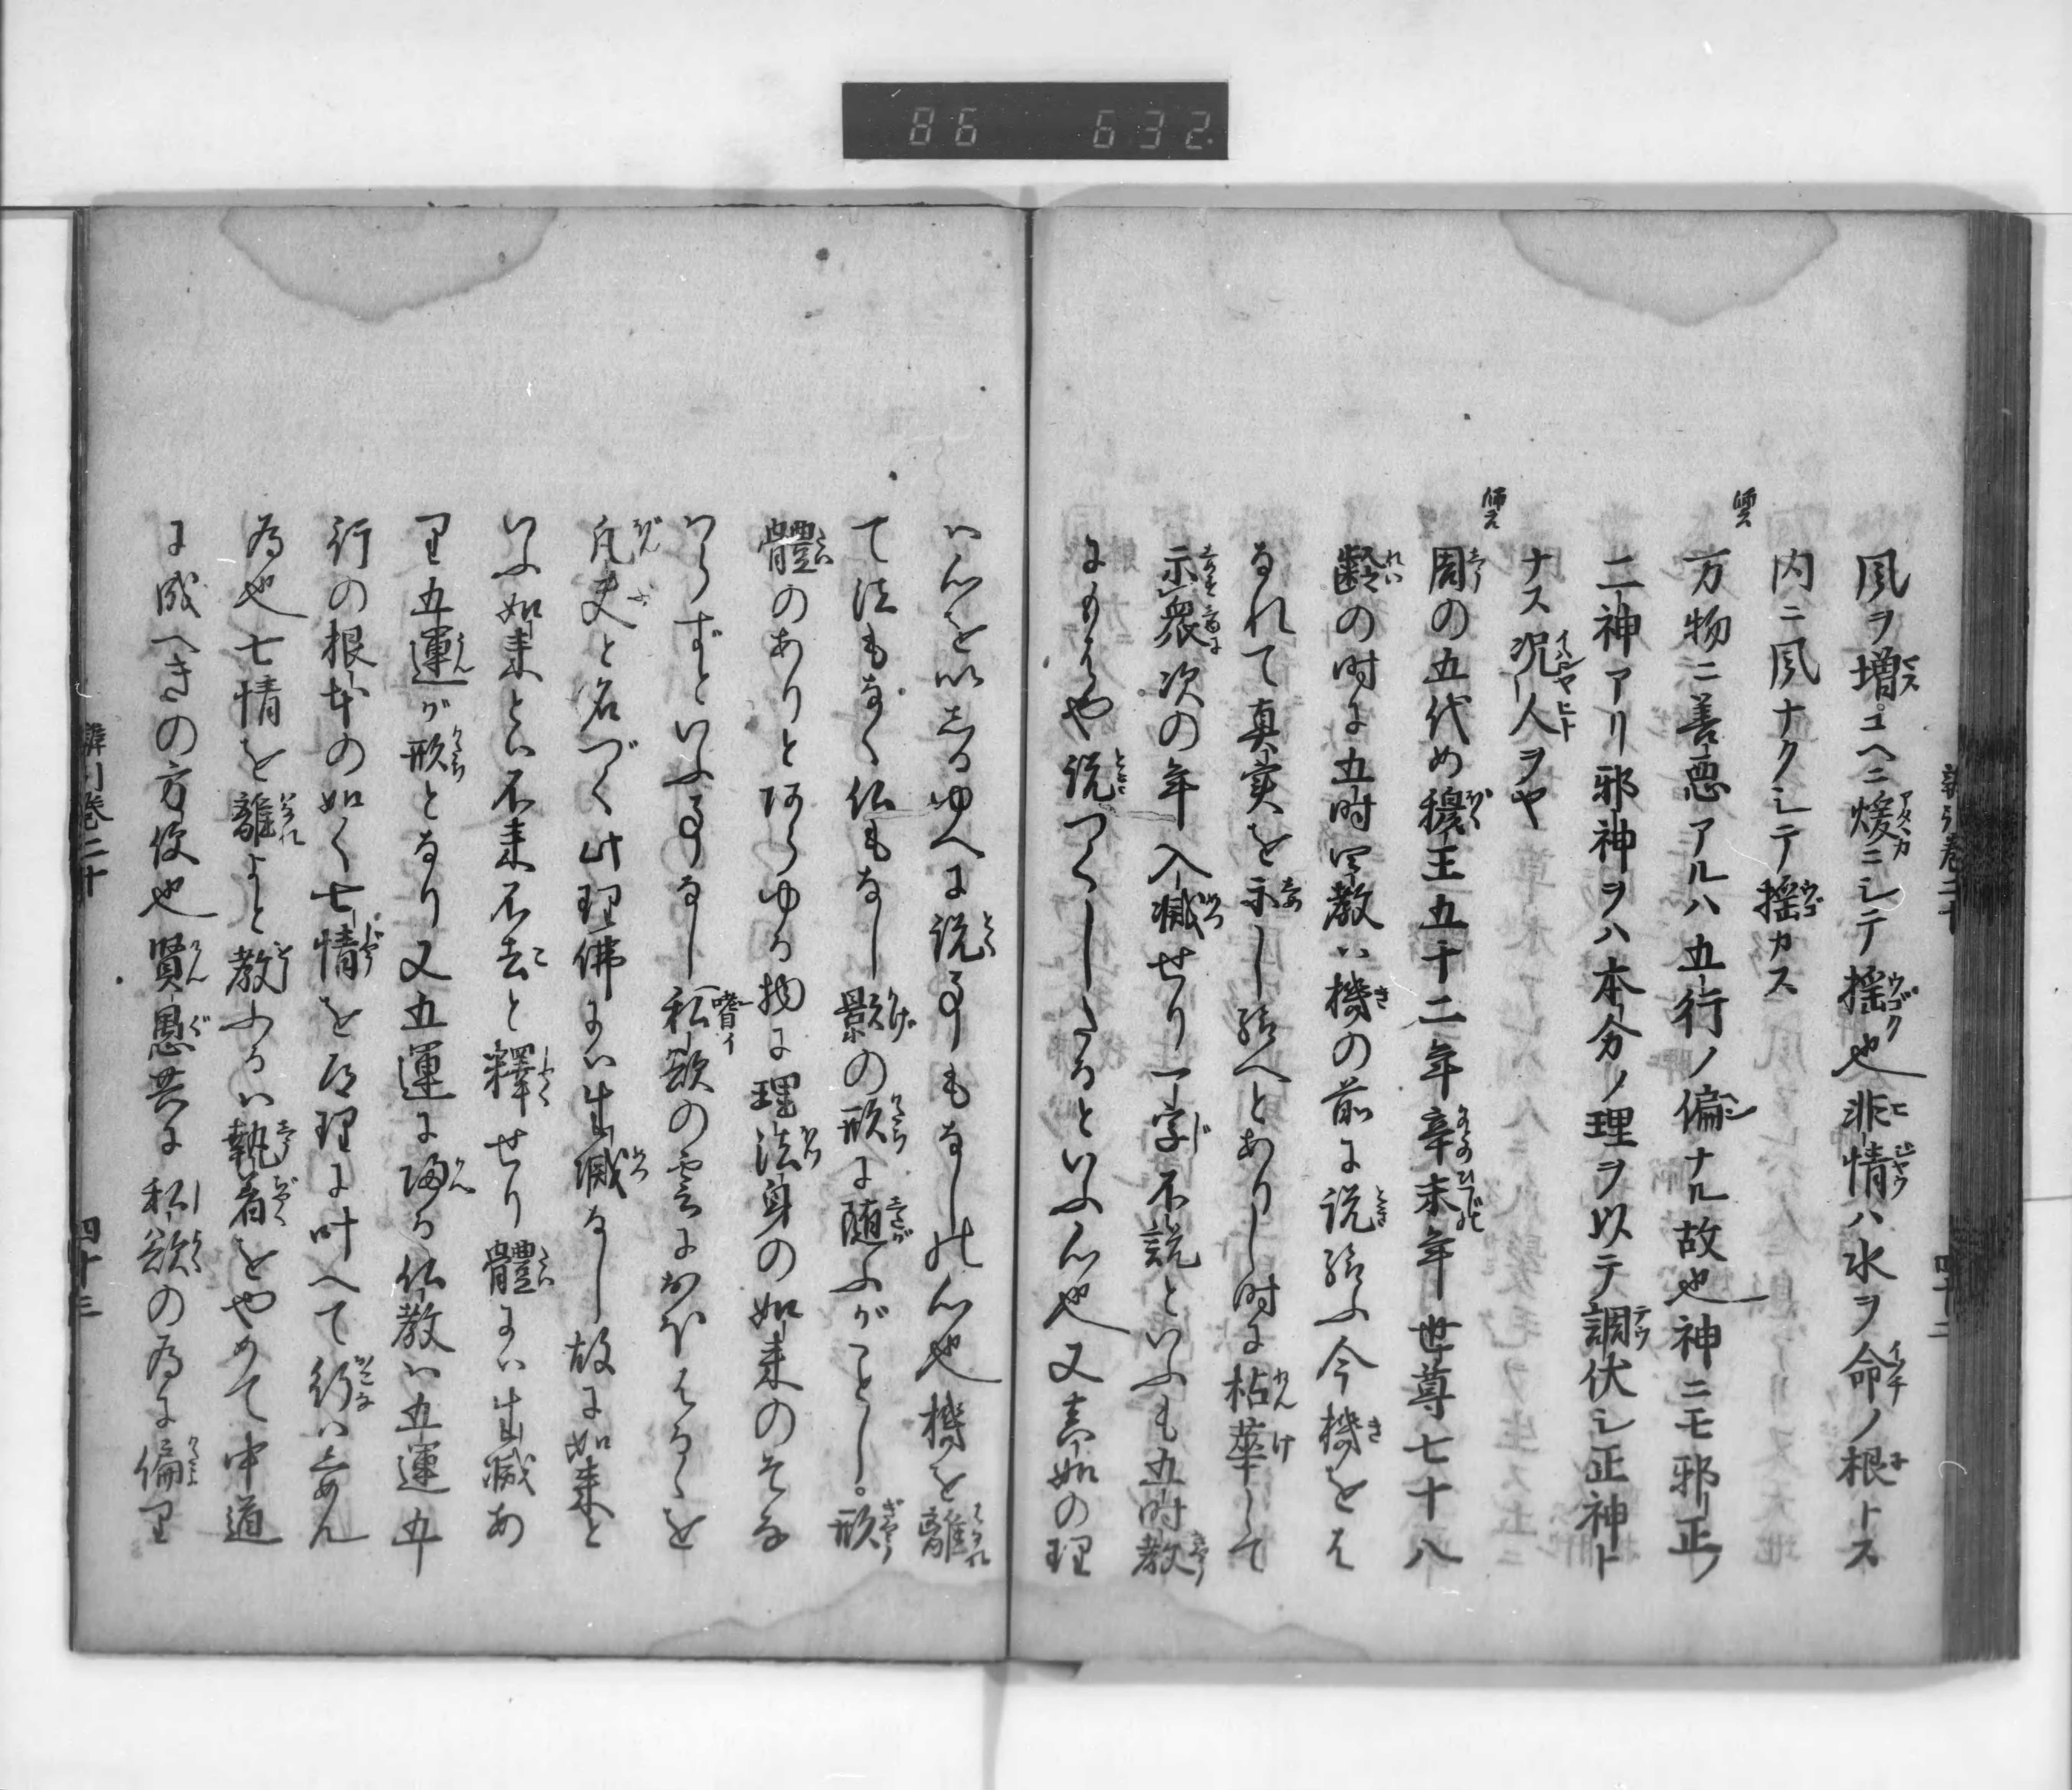 86 632
風ヲ増ユヘニ煖ニシテ揺也非情ハ水ヲ命ノ根トス
内ニ風ナクシテ揺カス
万物ニ善悪アルハ五行ノ偏ナル故也神ニモ邪正ノ
二神アリ邪神ヲハ本分ノ理ヲ以テ調伏シ正神ト
ナス况ヤ人ヲヤ
周の五代め穆王五十二年辛未年世尊七十八
齢の時に五時の教ハ機の前に説給ふ今機をは
なれて真実を示し給へとありし時に拈華して
示衆次の年入滅せり一字不説といふも五時教
にもるや説つくしたるといふ心也又真如の理
ハ心を以しるゆへに説事もなしの心也機を離
て法もなく仏もなし影の形に随ふがことし。形
體のありとあらゆる物に理法身の如来のそな
ハらずといふ事なし私欲の雲におほはるゝを
凡夫と名づく此理佛にハ生滅なし故に如来と
いふ如来とハ不来不去と釋せり體にハ生滅あ
り五運が形となり又五運に帰る仏教ハ五運五
行の根本の如く七情を理に叶へて行ハしめん
為也七情を離よと教ふるハ執着をやめて中道
に成へきの方便也賢愚共に私欲の為に偏り
辨引巻二十 四十三